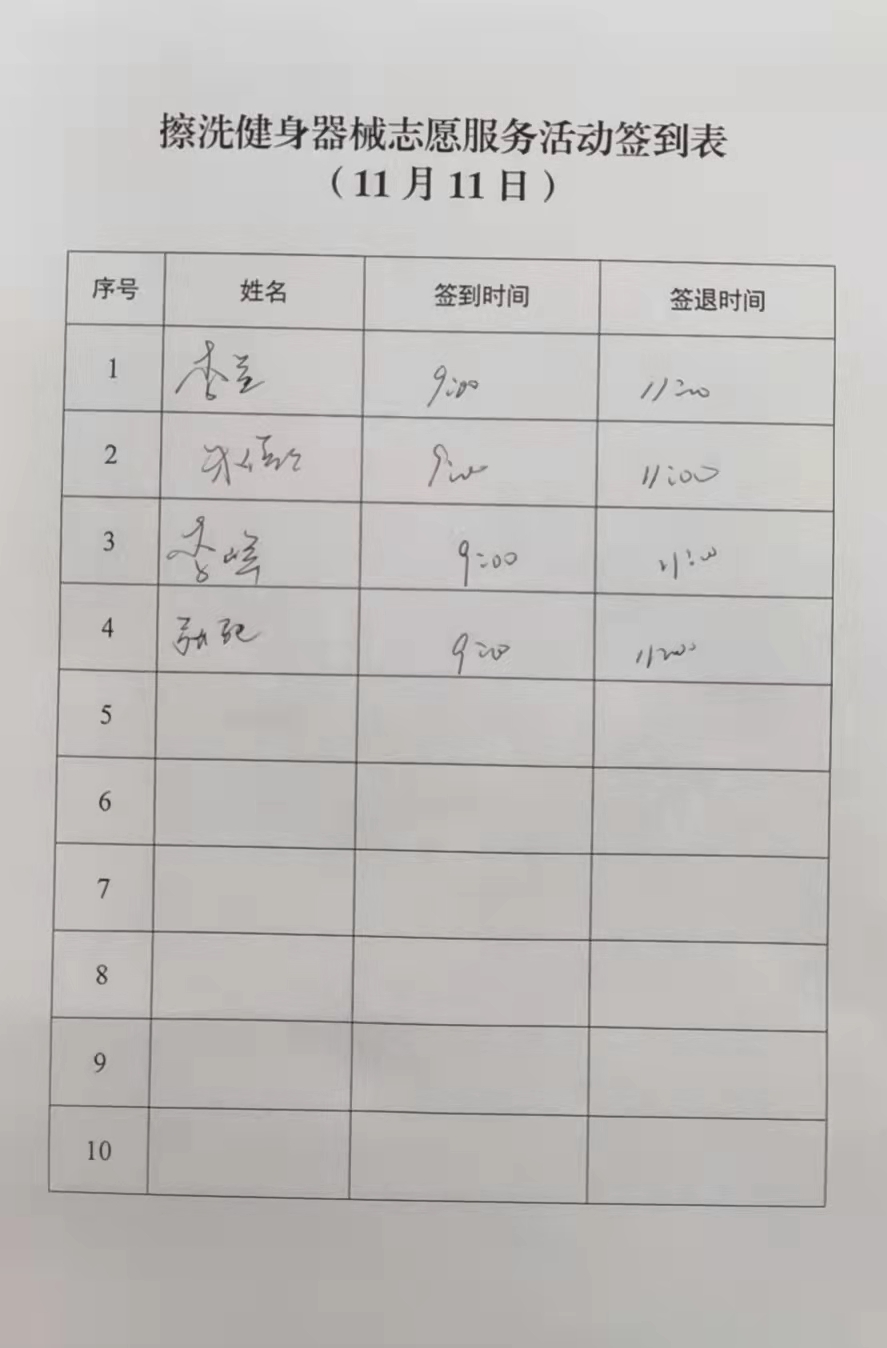 擦洗健身器械志愿服务活动签到表
（11月11日）
序号 姓名 签到时间 签退时间
1 李兰 9:00 11:00
2 9:00 11:00
3 李峰 9:00 11:00
4 9:00 11:00
5
6
7
8
9
10